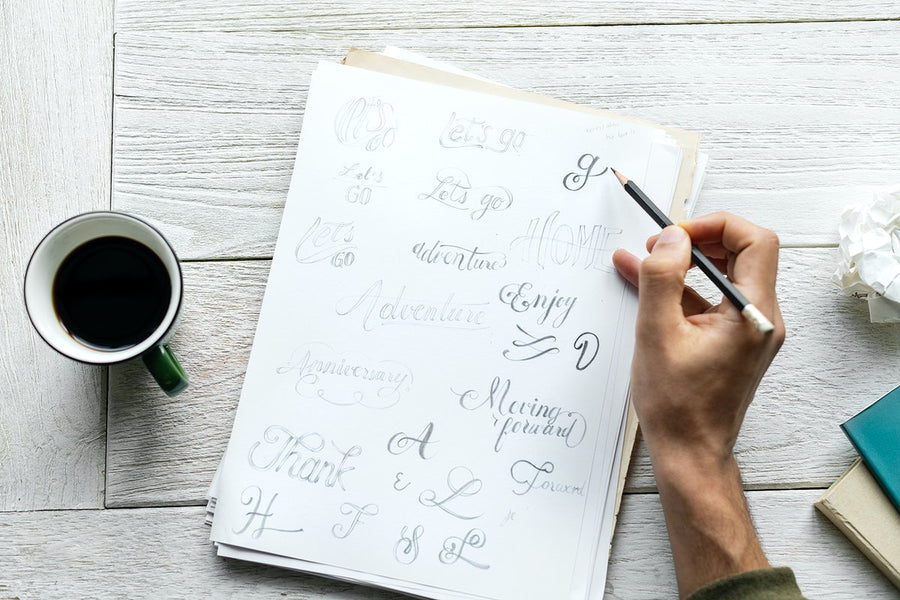 Let's go
Let's go
g
Let's
GO
Let's go
Let's
GO
adventure
HOME
Adventure
Enjoy
D
Anniversary
Moving
forward
Thank
A
Forward
E
L
H
F
S
L